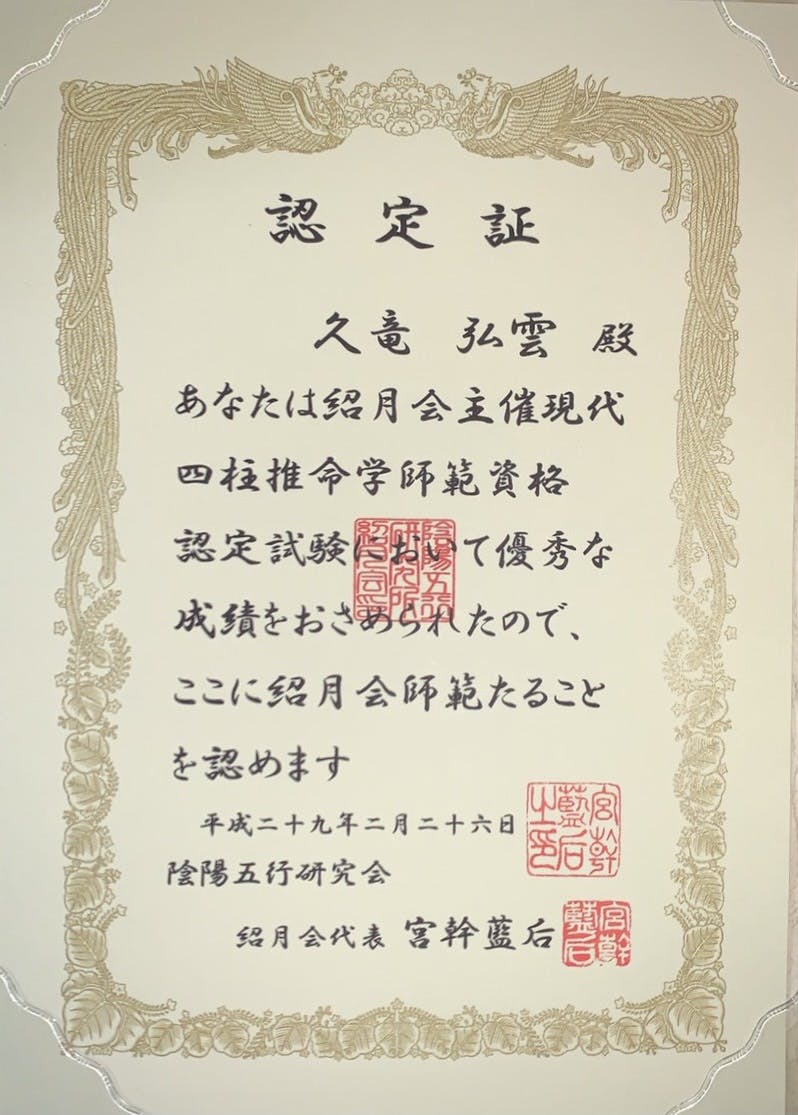 認定証
久竜 弘雲 殿
あなたは紹月会主催現代
四柱推命学師範資格
認定試験において優秀な
成績をおさめられたので、
ここに紹月会師範たること
を認めます
平成二十九年二月二十六日
陰陽五行研究会
紹月会代表 宮幹藍后
陰陽五行
研究所
紹月会印
宮幹
藍后
之印
宮幹
藍后